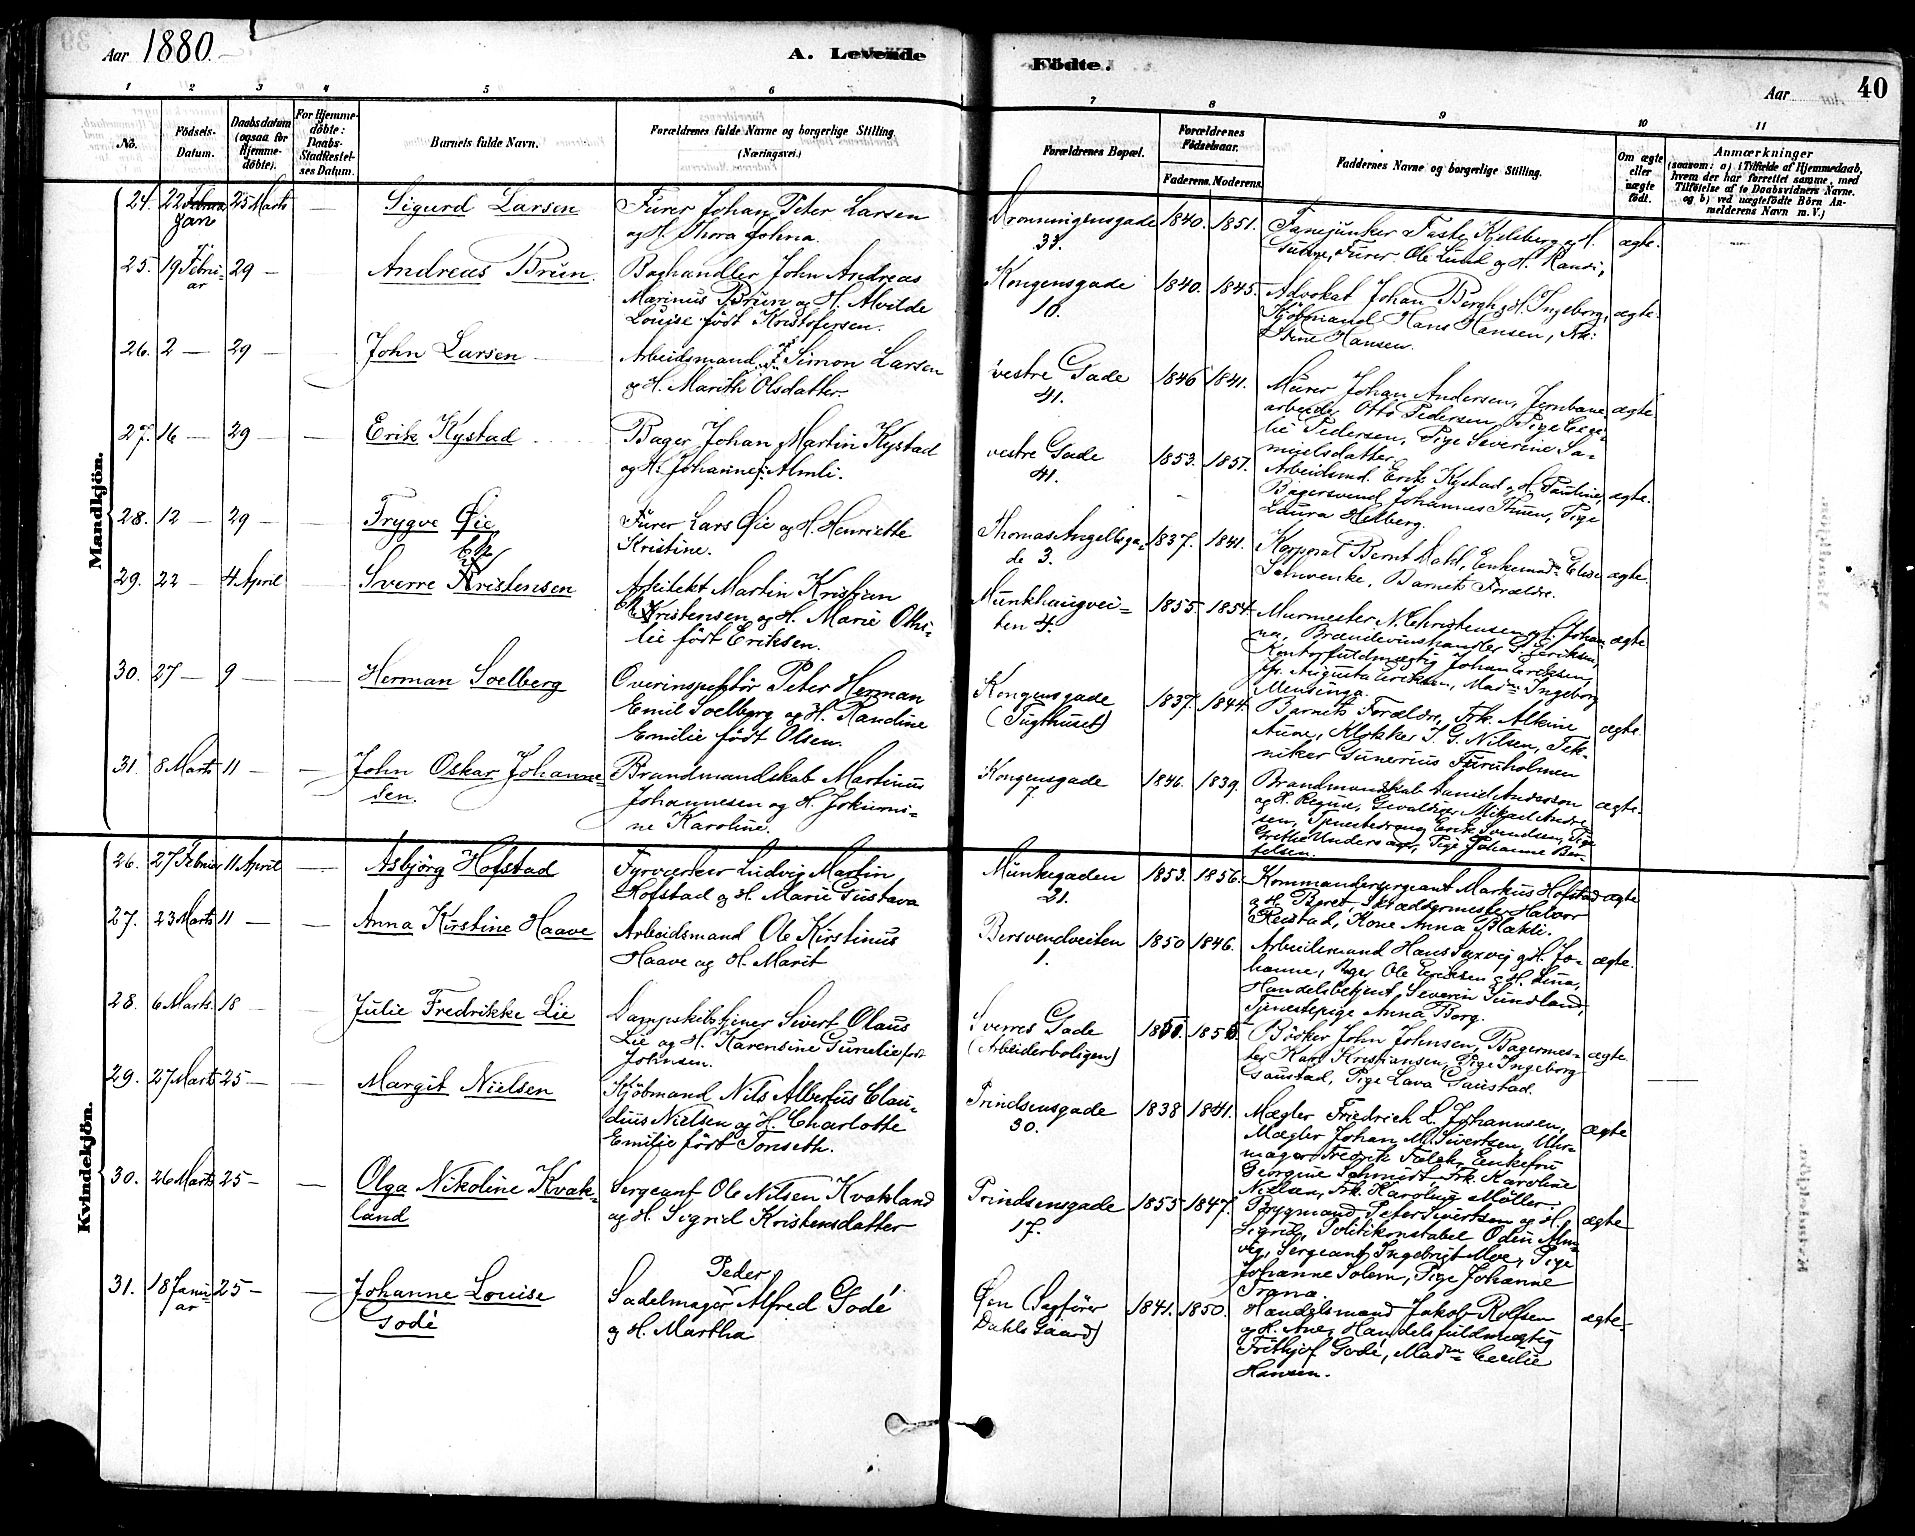 Aar 1880.
A. Levende Födte.
Aar 40
1 2 3 4 5 6 7 8 9 10 11
No.
Födsels-Datum.
Daabsdatum (ogsaa for Hjemme-döbte).
For Hjemme-döbte: Daabs-Stadfestel-ses Datum.
Barnets fulde Navn.
Forældrenes fulde Navne og borgerlige Stilling.
(Næringsvei.)
Forældrenes Bopæl.
Forældrenes Födselsaar.
Faderens. Moderens.
Faddernes Navne og borgerlige Stilling.
Om ægte eller uægte födt.
Anmærkninger
(saasom: a) i Tilfælde af Hjemmedaab,
hvem der har forrettet samme, med
Tilföielse af to Daabsvidners Navne.
og b) ved uægtefödte Börn An-
melderens Navn m. V.)
Mandkjön.
24. 22 Jan 25 Marts Sigurd Larsen
Furer Johan Peter Larsen
og H. Thora Johna.
Dronningensgade 1840. 1851.
Fanejunker Kjelsberg og H.
Furer Ole Lund og H. Randi, ægte.
25. 19 Febru-ar 29 — Andreas Brun.
Boghandler John Andreas
Marinus Brun og H. Alvilde
Louise født Kristofersen.
Kongensgade 10. 1840. 1845.
Advokat Johan Bergh og H. Ingeborg,
Kjöbmand Hans Hansen, Frk.
Stine Hansen. ægte.
26. 2 — 29 — John Larsen
Arbeidsmand Simon Larsen
og H. Marith Olsdatter.
vestre Gade 41. 1846 1841.
Murer Johan Andersen, Jernbane-
arbeider Otto Pedersen, Pige
Pedersen, Pige Severine Sa-
muelsdatter. ægte.
27. 16 — 29 — Erik Kystad
Bager Johan Martin Kystad
og H. Johanne f. Almli.
vestre Gade 41. 1853. 1857.
Arbeidsmd. Erik Kystad og H. Pauline,
Bagersvend Johannes Thuen, Pige
Laura Helberg. ægte.
28. 12 — 29 — Trygve Øie
Furer Lars Øie og H. Henriette
Kristine.
Thomas Angellsga-
de 3. 1837. 1841.
Korporal Bernt Dahl, Enkemad. Elise
Schwenke, Barnets Forældre. ægte.
29. 22 — 4 April Sverre Christensen
Arkitekt Martin Kristian
Christensen og H. Marie Othi-
lie født Eriksen.
Munkhaugvei-
ten 4. 1855. 1854.
Murmester N. Christensen og H. Johan-
na, Brændevinshandler P. Eriksen,
Kontorfuldmægtig Johan Eriksen,
Augusta Eriksen, Mad. Ingeborg
Mensinga. ægte
30. 27 — 9 — Herman Soelberg
Overinspektör Peter Herman
Emil Soelberg og H. Randine
Emilie født Olsen.
Kongensgade
(Tugthuset) 1837. 1844.
Barnets Forældre, Frk. Alkine
Aune, Klokker J. G. Nilsen, Tek-
niker Gunerius Furuholmen ægte.
31. 8 Marts 11 — John Oskar Johanne-
sen.
Brandmandskab Martinus
Johannesen og H. Jokumi-
ne Karoline.
Kongensgade 7. 1846. 1839.
Brandmandskab Daniel Anderson
og H. Regine, Gevaldiger Mikael Andre-
sen, Tjenestedreng Erik Svendsen, Pige
Grethe Andersen, Pige Johanne Ber-
telsen. ægte.
Kvindekjön.
26. 27 Februar 11 April Asbjörg Hofstad
Fyrværker Ludvig Martin
Hofstad og H. Marie Gustava
Munkegaden 21. 1853. 1856.
Kommandersergeant Markus Hofstad
og H. Beret, Skræddermester Halvor
Reistad, Kone Anna Blakli. ægte
27. 23 Marts 11 — Anna Kirstine Haave
Arbeidsmand Ole Kirstinus
Haave og H. Marit
Bersvendveiten 1. 1850 1846.
Arbeidsmand Hans Saxvig og H. Jo-
hanne, Bager Ole Eriksen og H. Lina,
Handelsbetjent Severin Sundland,
Tjenestepige Anna Borg. ægte.
28. 6 Marts. 18 — Julie Fredrikke Lie
Dampskibstjener Sivert Olaus
Lie og H. Karensine Gurelie født
Johnsen.
Sverres Gade
(Arbeiderboligen)
Bödker John Johnsen, Bagermes-
ter Karl Kristiansen, Pige Ingeborg
Gaustad, Pige Lava Gaustad. ægte.
29. 27 Marts 25 — Margit Nielsen
Kjöbmand Nils Albertus Clau-
dius Nielsen og H. Charlotte
Emilie født Tonseth.
Prindsensgade 30. 1838 1841.
Mægler Friedrich L. Johannsen,
Mægler Johan M. Sivertsen, Uhr-
mager Fredrik Falck, Enkefru
Georgine Schmidt, Frk. Karoline
Nielsen, Frk. Karoline Möller. ægte
30. 26 Marts 25 — Olga Nikoline Kvak-
land
Sergeant Ole Nilsen Kvakland
og H. Sigrid Kristensdatter
Prindsensgade 17. 1855 1847.
Brygmand Peter Sivertsen og H.
Sigrid, Politikonstabel Odin Alm-
vig, Sergeant Ingebrigt Moe, Pige
Johanne Solem, Pige Johanne
Trana. ægte
31. 18 Janu-
ar 25 — Johanne Louise
Godé
Sadelmager Peder Alfred Godé
og H. Martha
Øen (Sagförer
Dahls Gaard) 1841. 1850.
Handelsmand Jakob Rolfsen
og H. Ane, Handelsfuldmægtig
Frithjof Godé, Madm Cecilie
Hansen. ægte.